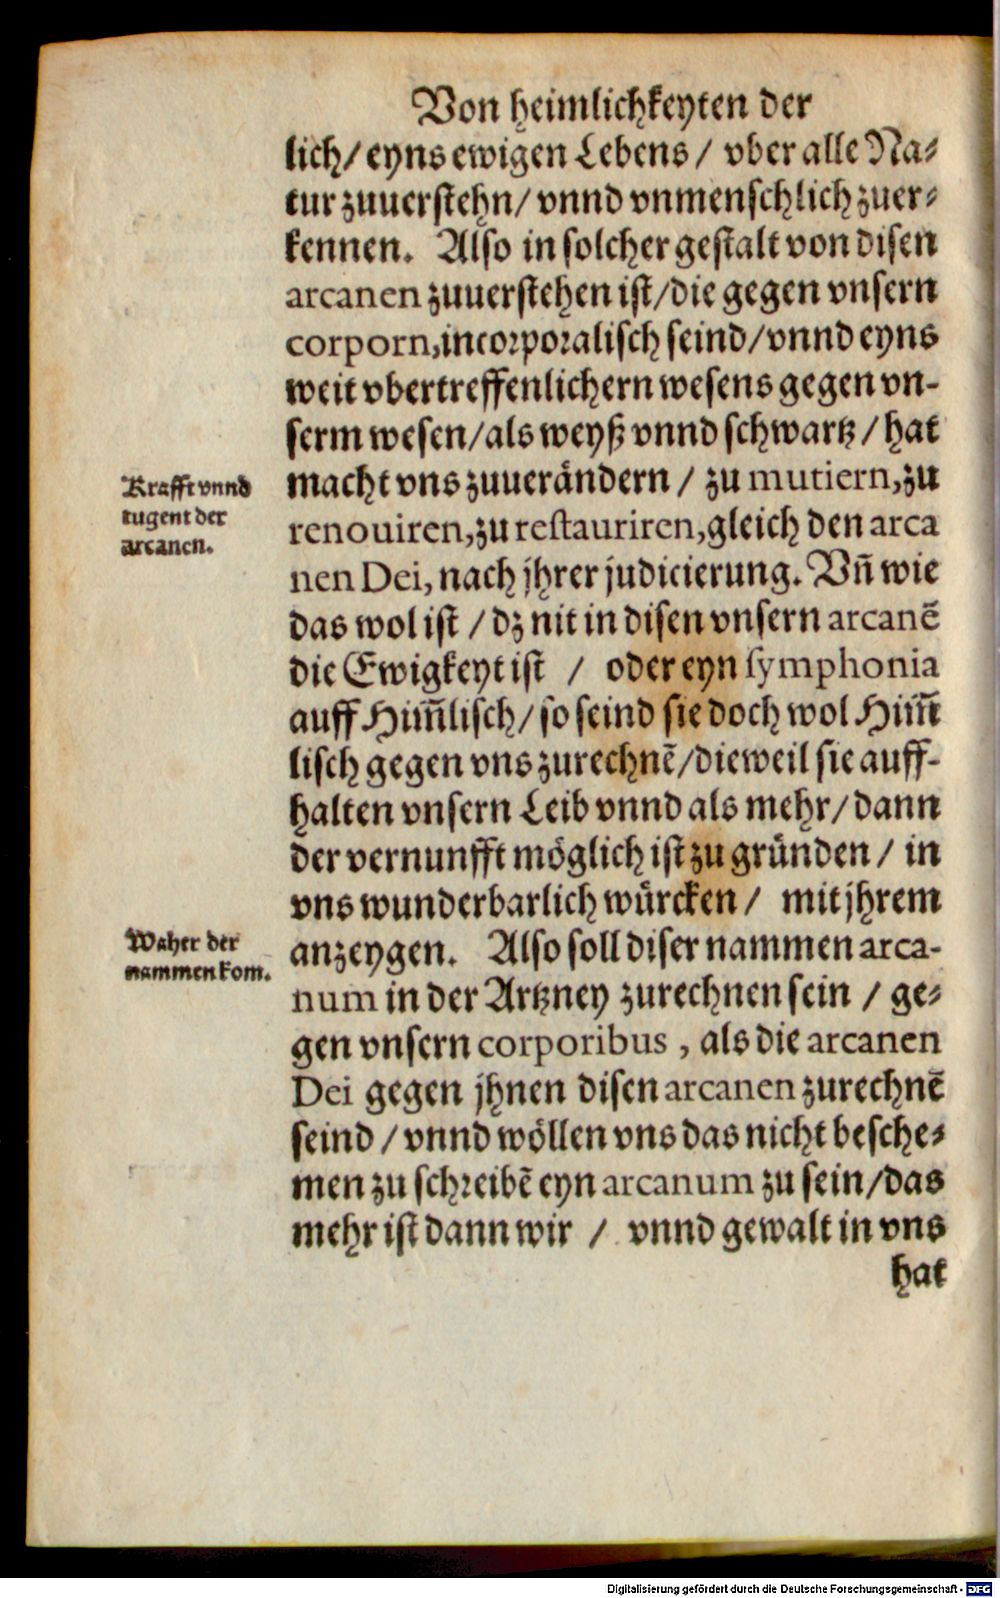 Von heimlichkeyten der
lich/ eyns ewigen Lebens/ vber alle Na⸗
tur zuuerstehn/ vnnd vnmenschlich zuer⸗
kennen. Also in solcher gestalt von disen
arcanen zuuerstehen ist/die gegen vnsern
corporn,incorporalisch seind/vnnd eyns
weit vbertreffenlichern wesens gegen vn-
serm wesen/als weyß vnnd schwartz/hat
Krafft vnnd
tugent der
arcanen.
macht vns zuuerändern / zu mutiern,zu
renouiren,zu restauriren,gleich den arca
nen Dei, nach jhrer judicierung. Vñ wie
das wol ist / dz nit in disen vnsern arcanẽ
die Ewigkeyt ist / oder eyn symphonia
auff Him̃lisch/ so seind sie doch wol Him̃
lisch gegen vns zurechnẽ/dieweil sie auff-
halten vnsern Leib vnnd als mehr/ dann
der vernunfft möglich ist zu gründen/ in
vns wunderbarlich würcken/ mit jhrem
Waher der
nammen kom.
anzeygen. Also soll diser nammen arca-
num in der Artzney zurechnen sein / ge⸗
gen vnsern corporibus , als die arcanen
Dei gegen jhnen disen arcanen zurechnẽ
seind / vnnd wöllen vns das nicht besche⸗
men zu schreibẽ eyn arcanum zu sein/das
mehr ist dann wir / vnnd gewalt in vns
hat
Digitalisierung gefördert durch die Deutsche Forschungsgemeinschaft - DFG